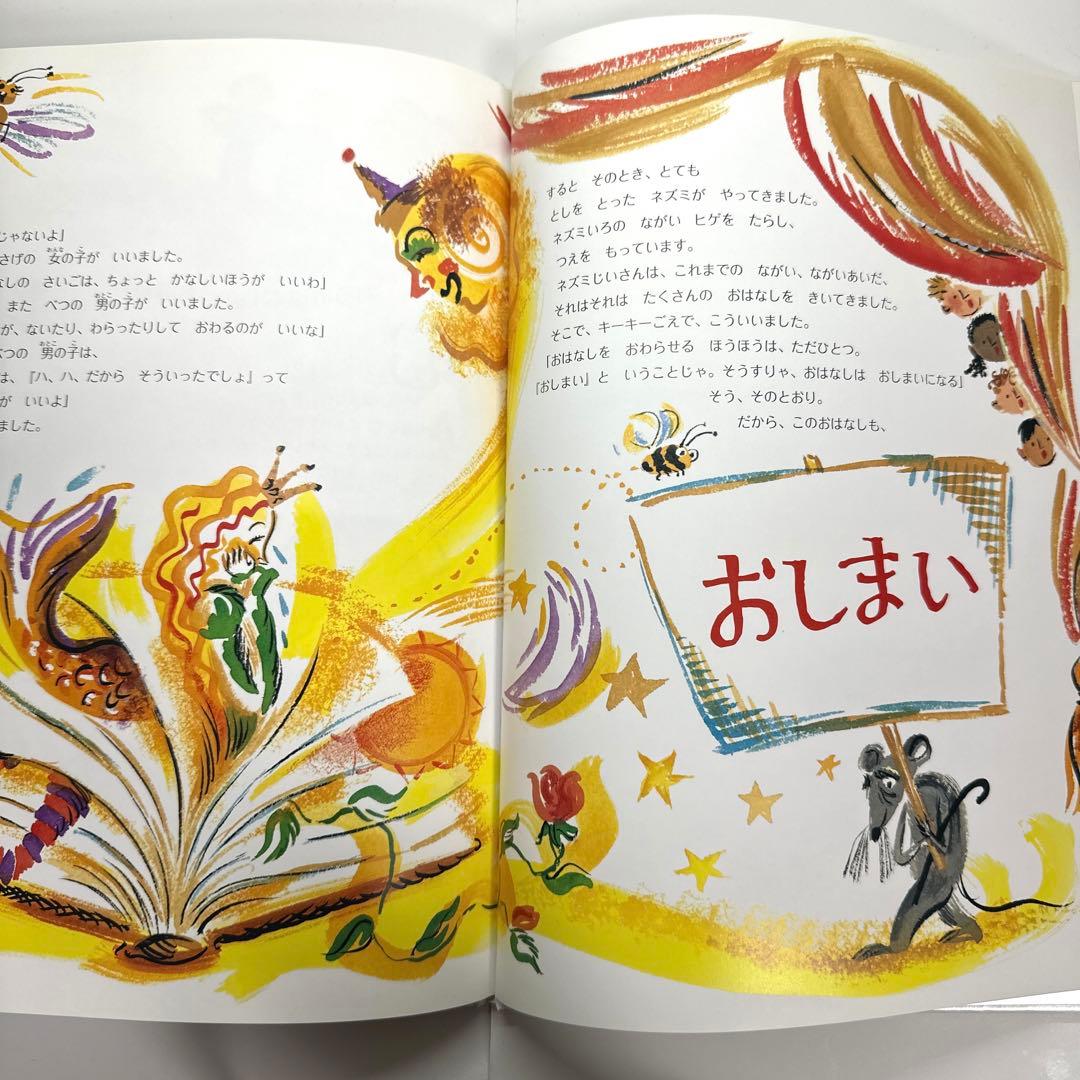 じゃないよ」
さげの 女の子が いいました。
なしの さいごは、ちょっと かなしいほうが いいわ」
また べつの 男の子が いいました。
が、ないたり、わらったりして おわるのが いいな」
つの 男の子は、
は、『ハ、ハ、だから そういったでしょ』って
が いいよ」
ました。
すると そのとき、とても
としを とった ネズミが やってきました。
ネズミいろの ながい ヒゲを たらし、
つえを もっています。
ネズミじいさんは、これまでの ながい、ながいあいだ、
それはそれは たくさんの おはなしを きいてきました。
そこで、キーキーごえで、こういいました。
「おはなしを おわらせる ほうほうは、ただひとつ。
『おしまい』と いうことじゃ。そうすりゃ、おはなしは おしまいになる」
そう、そのとおり。
だから、このおはなしも、
おしまい